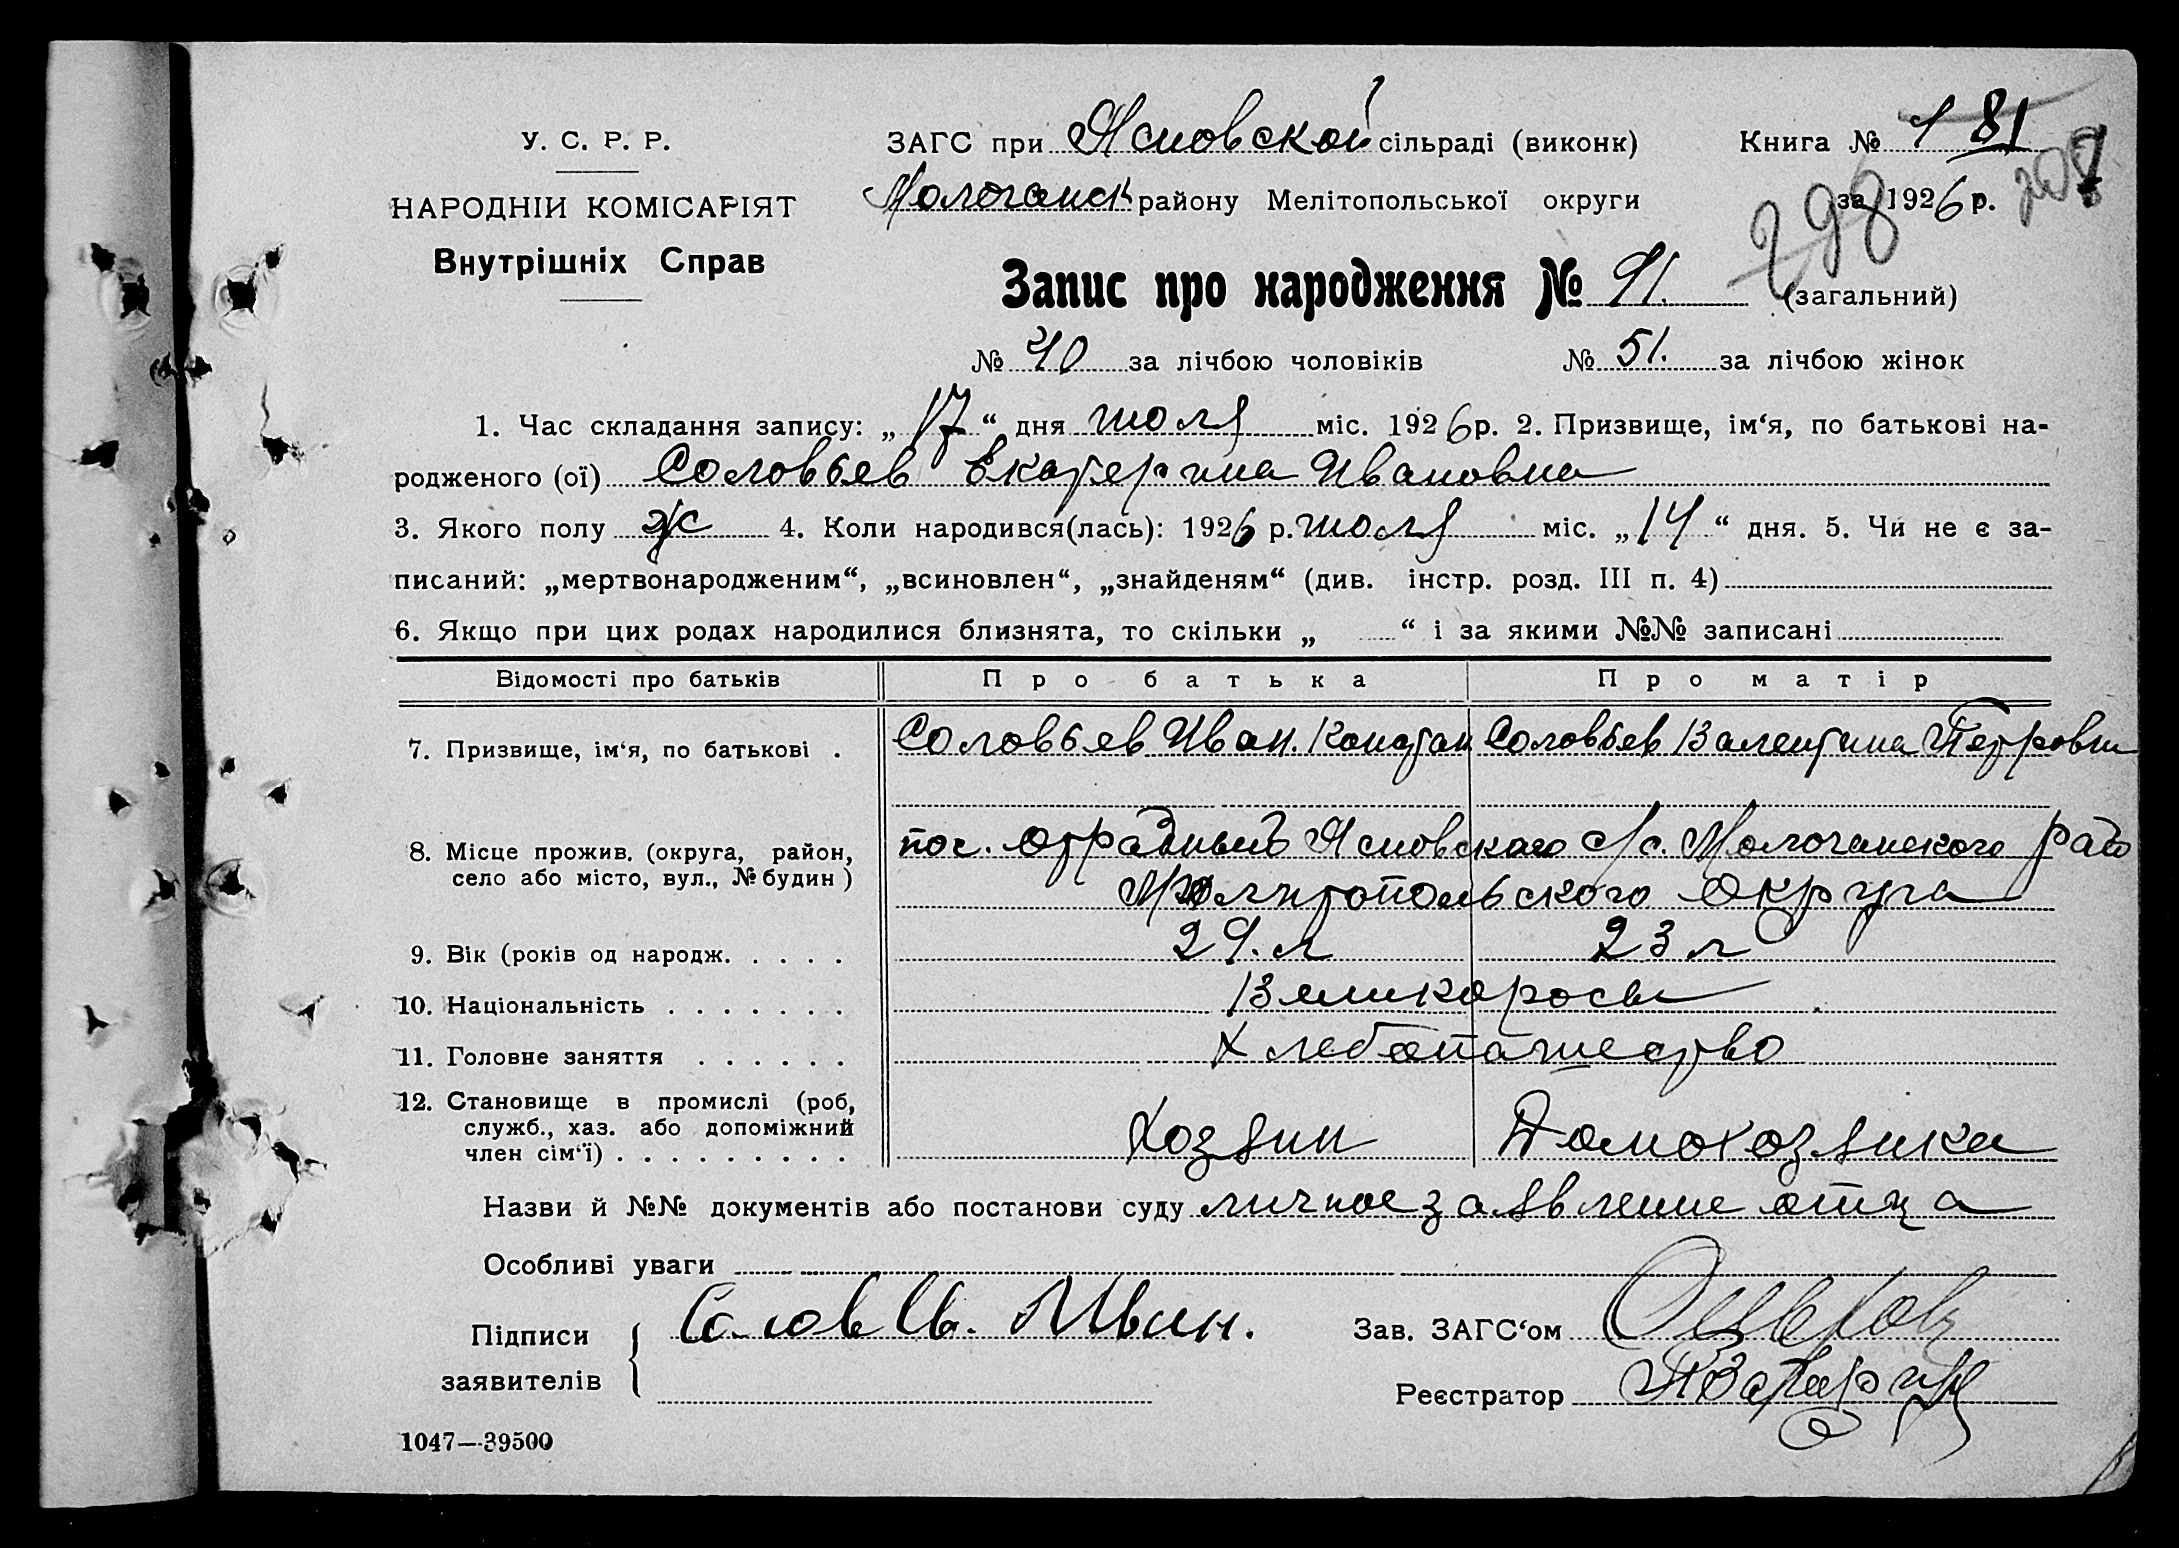 У. С. Р. Р.
НАРОДНІЙ КОМІСАРІЯТ
Внутрішніх Справ
ЗАГС при Ясновской сільраді (виконк) Книга № 1 81
Молочанск району Мелітопольської округи за 1926 р. 208
298
Запис про народження № 91. (загальний)
№ 40 за лічбою чоловіків № 51. за лічбою жінок
1. Час складання запису: „17“ дня июля міс. 1926 р. 2. Призвище, ім‘я, по батькові на-
родженого (ої) Соловьев Екатерина Ивановна
3. Якого полу ж 4. Коли народився(лась): 1926 р. июля міс. „14“ дня. 5. Чи не є за-
писаний: „мертвонародженим“, „всиновлен“, „знайденям“ (див. інстр. розд. III п. 4)
6. Якщо при цих родах народилися близнята, то скільки „ “ і за якими №№ записані
Відомості про батьків Про батька Про матір
7. Призвище, ім‘я, по батькові . Соловьев Иван. Констан Соловьев Валентина Петровн
8. Місце прожив. (округа, район, село або місто, вул., № будин) пос. Отрадный Ясновского с/с. Молочанского райо
Мелитопольского округа
9. Вік (років од народж. . . . . 29. л 23 л
10. Національність . . . . . . . Великоросы
11. Головне заняття . . . . . . Хлебопашество
12. Становище в промислі (роб,
служб., хаз. або допоміжний
член сім‘ї) . . . . . . . . . Хозяин Домохозяика
Назви й №№ документів або постанови суду личное заявление отца
Особливі уваги
Підписи заявителів { Соловьв. Иван. Зав. ЗАГС‘ом
Реєстратор
1047—39500